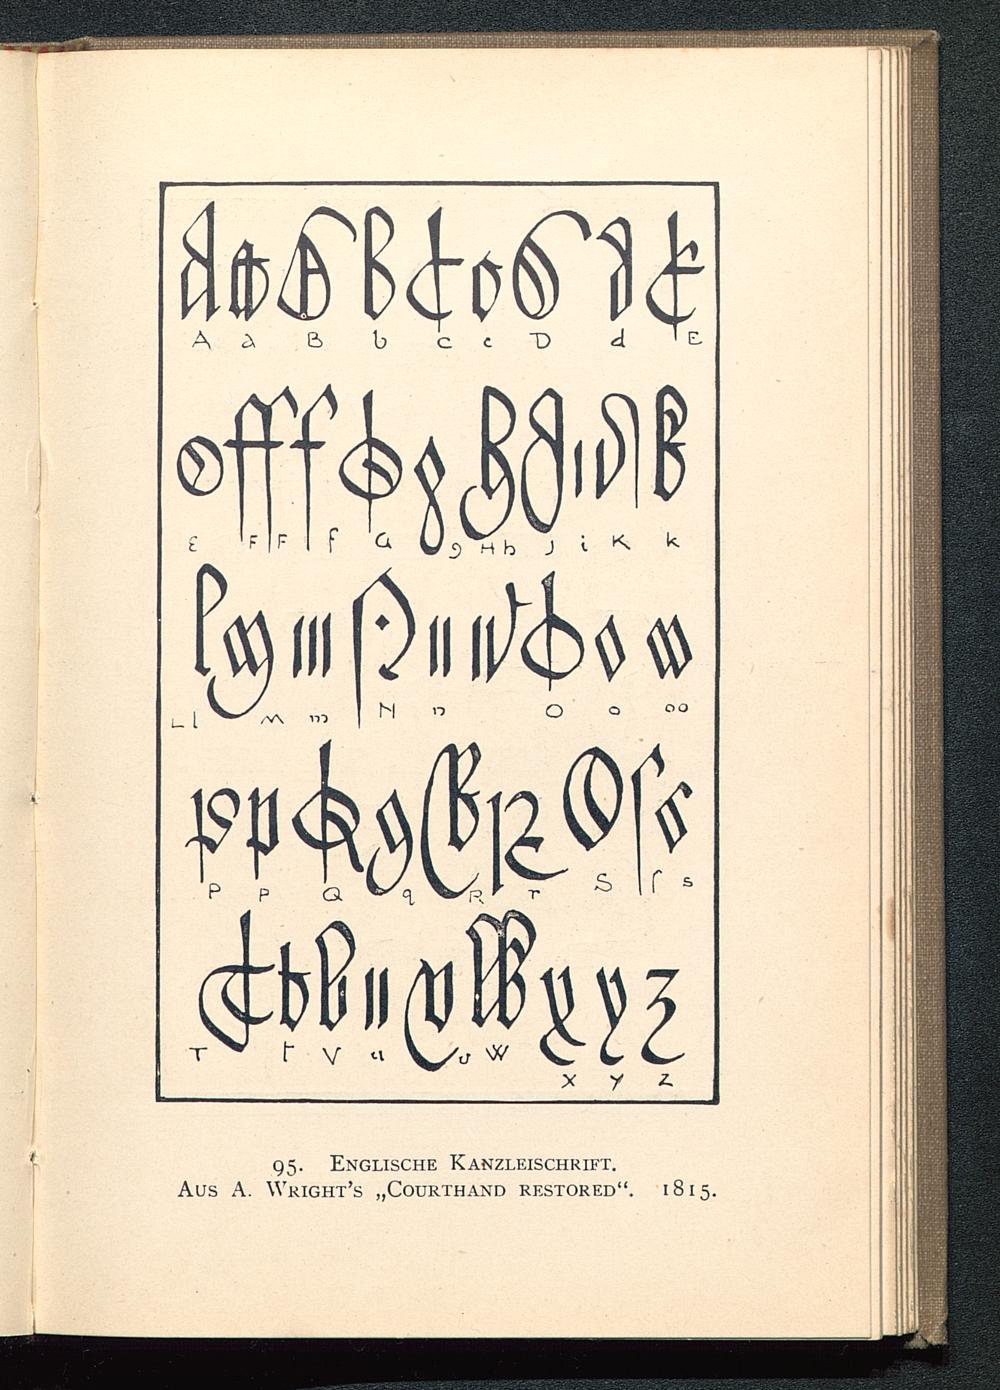 A a B b C c D d E
E F F f G g H h J i K k
L l M m N n O o oo
P p Q q R r S ſ s
T t V u v W
X Y Z
95. Englische Kanzleischrift.
Aus A. Wright's „Courthand restored“. 1815.